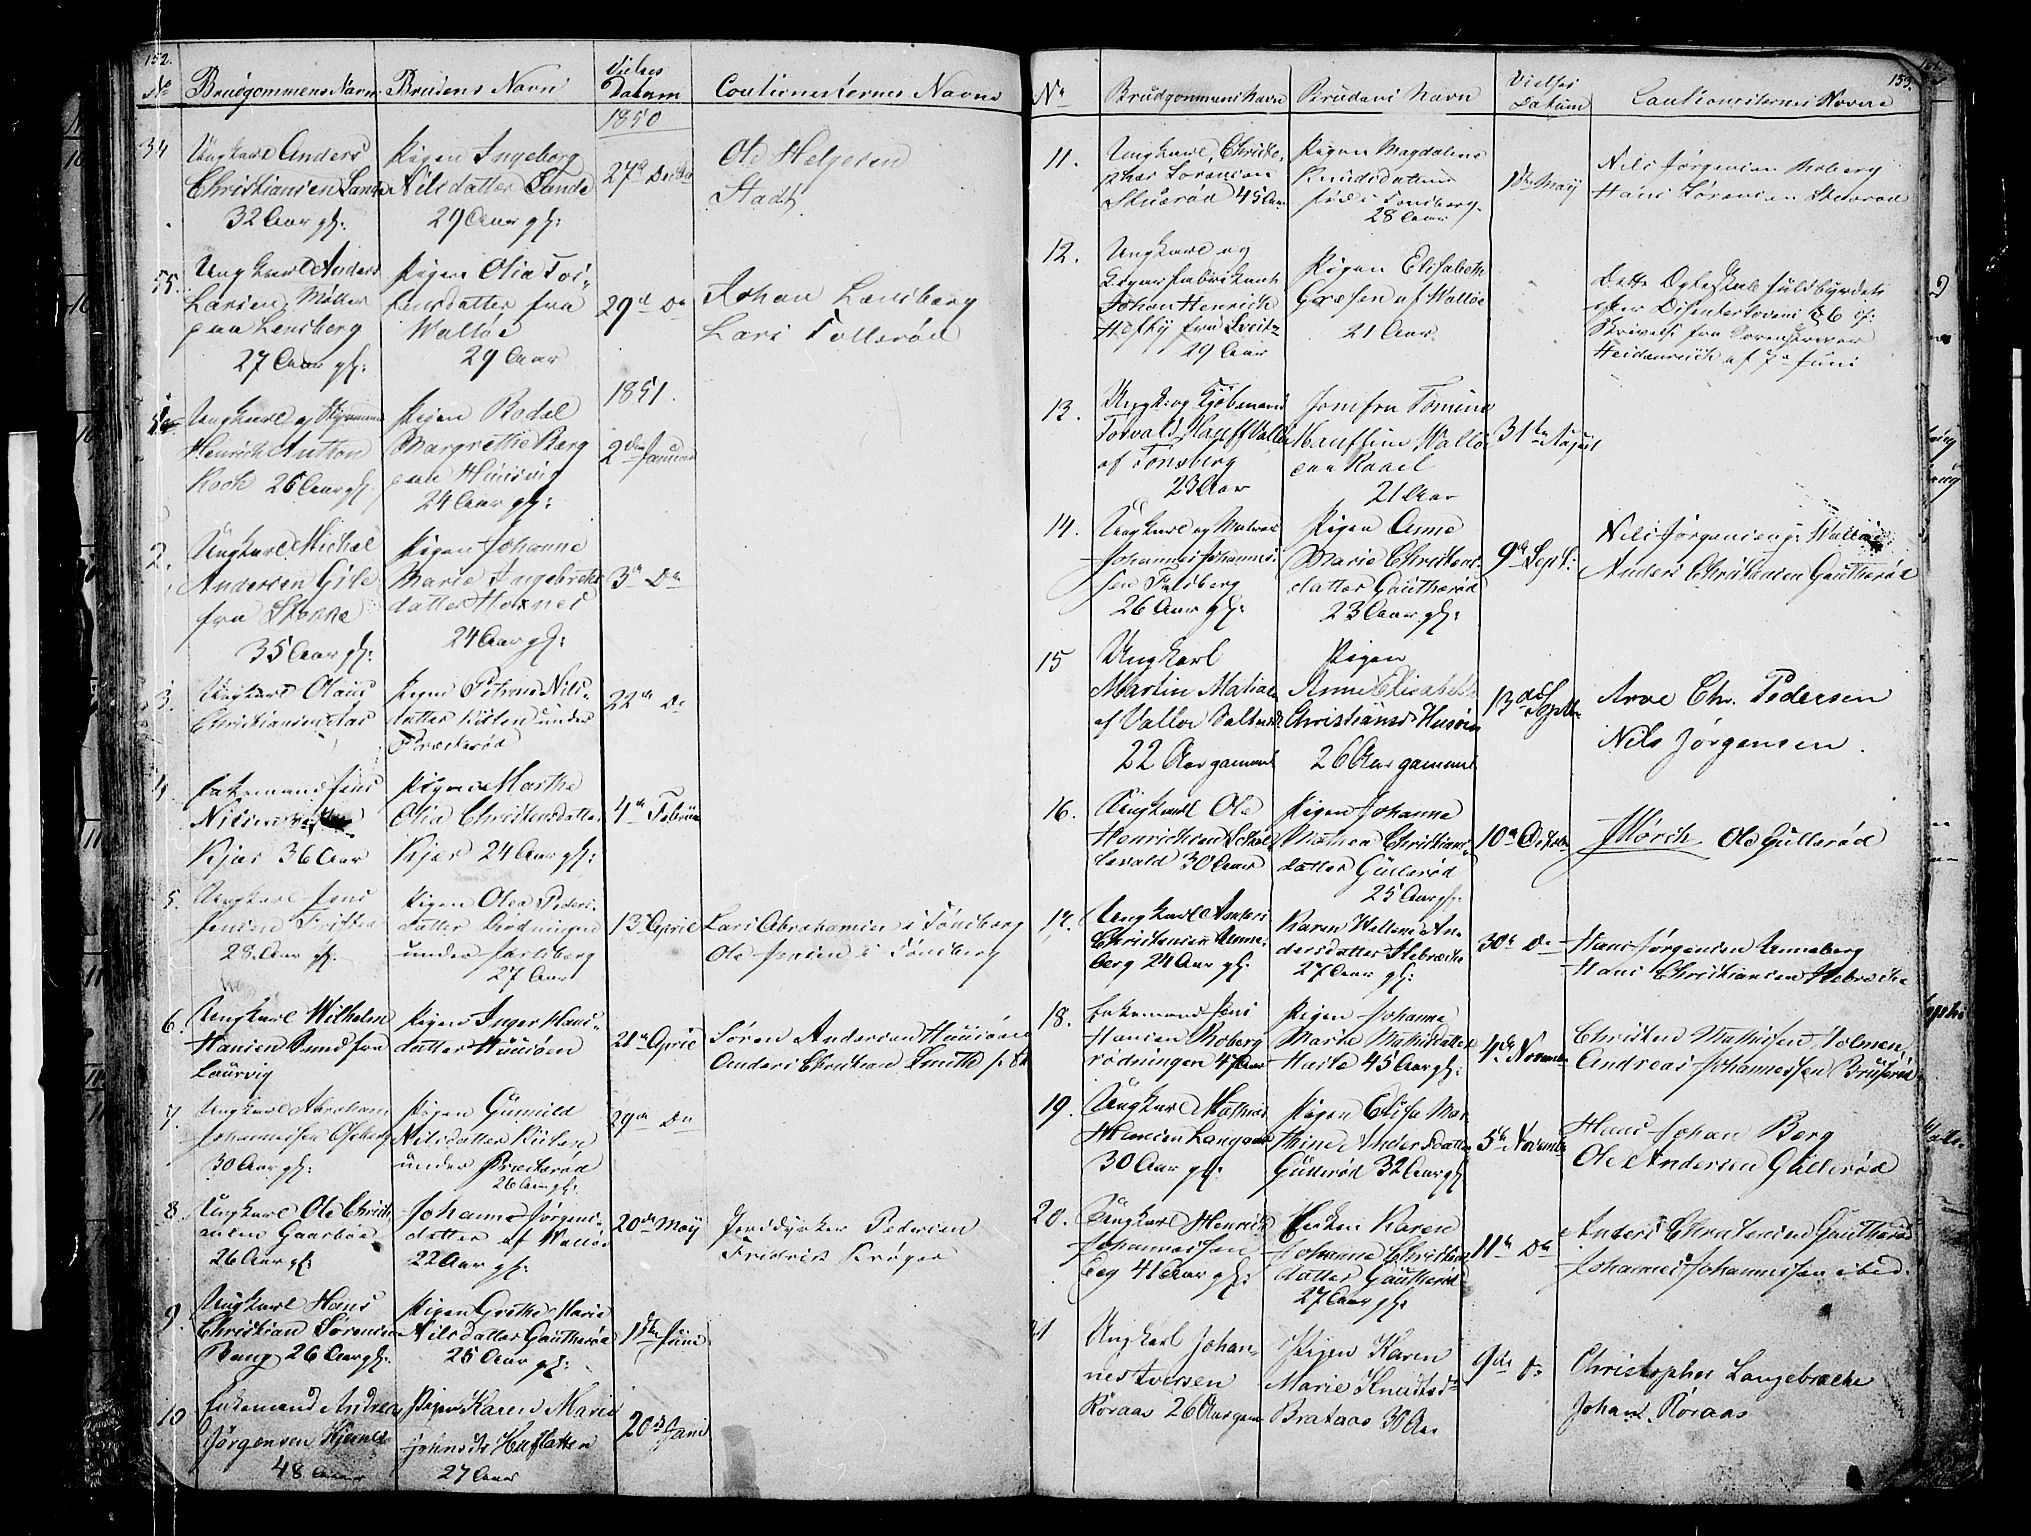 152.
No Brudgommens Navn Brudens Navn Vielses Datum Cautionisternes Navne
1850
34
Ungkarl Anders
Christiansen Sande
32 Aar gl:
Pigen Ingeborg
Nilsdatter Sande
29 Aar gl:
27de Decbr
Ole Helgesen
Stadt
35.
Ungkarl Anders
Larsen Møller
paa Lensberg
27 Aar gl:
Pigen Olia Tor-
datter fra
Walløe
29 Aar
29de Do
Johan Lensberg
Lars Tollerød
1851.
Ungkarl og Styrmand
Henrich Antton
Koch 26 Aar gl.
Pigen Bodel
Margrethe Berg
paa Huusvig
24 Aar gl:
2den Januar
2.
Ungkarl Michal
Andersen Gile
fra Stokke
35 Aar gl:
Pigen Johanne
Marie Ingebrets
datter Hoxnes
24 Aar gl:
3de Do
3.
Ungkarl Olaus
Christiansen Aas
Pigen Petrine Nils-
datter Kisten under
Præsterød
22de Do
4
Enkemand Jens
Nilsen
Kjær 36 Aar
Pigen Marthe
Olia Christensdatter
Kjær 24 Aar gl:
4de Februar
5.
Ungkarl Jens
Jensen
28 Aar gl.
Pigen Olea Peders-
datter Rødningen
under Jarlsberg
27 Aar
13 April
Lars Abrahamsen i Tønsberg
Ole Jensen i Tønsberg
6.
Ungkarl Wilhelm
Hansen Smed fra
Laurvig
Pigen Inger Hans-
datter Huusøen
21de April
Søren Andersen Huusøen
Anders Christian Smith
7.
Ungkarl Abraham
Johannessen Oseberg
30 Aar gl:
Pigen Gunnild
Nilsdatter Kisten
under Præsterød
26 Aar gl:
29de Do
8.
Ungkarl Ole Christi
Gaasbøe
26 Aar gl:
Johanne Jørgens-
datter af Walløe
22 Aar gl:
20de May
Jorddyrker Pedersen
Fridrik Krøger
9.
Ungkarl Hans
Christian Sørensen
Bang 26 Aar gl.
Pigen Grethe Marie
Nilsdatter Gautherød
25 Aar gl:
1ste Juni
10
Enkemand Andreas
Jørgensen Hjernes
48 Aar
Pigen Karen Marie
Johnsdtr Huflatten
27 Aar
20de Juni
153.
No Brudgommens Navn Brudens Navn Vielses Datum Cautionisternes Navne
11.
Ungkarl Christo-
pher Sørensen
Skuerød 45 Aar
Pigen Magdalene
Knudsdatter
født i Tønsberg
28 Aar
1ste May
Nils Jørgensen Roberg
Hans Sørensen Skuerød
12.
Ungkarl og
Cigarfabrikant
Johan Henrich
Hefty fra Sveitz
29 Aar
Pigen Elisabeth
Gresen af Walløe
21 Aar
Dette Ægteskab fuldbyrdets
efter Disenterlovens § 6 cf:
Skrivelse fra Sorenskriver
Heidenreich af 7de Juni
13.
Ungk: og Kjøbmand
Torvald Hauff Vallø
af Tønsberg
23 Aar
Jomfru Tomine
Walløe
paa Raael
21 Aar
31te August
14.
Ungkarl og Matros
Johannes Johannes-
sen Feldberg
26 Aar gl:
Pigen Anne
Marie Christens-
datter Gautherød
23 Aar gl:
9de Sept:
Nils Jørgensen Walløe
Anders Christensen Gautherød
15
Ungkarl
Martin Matias
af Valløe Saltværk
22 Aar gammel
Pigen
Anne Elisabeth
Christiansd: Husøen
26 Aar gammel
13de Septbr
Arve Chr. Pedersen
Nils Jørgensen.
16.
Ungkarl Ole
Henrichsen
30 Aar
Pigen Johanne
Mathea Christians-
datter Gullerød
25 Aar gl:
10de Octobr
Mørch Ole Gullerød
17.
Ungkarl Anders
Christensen Unne-
berg 24 Aar gl.
Karen Hellene An-
dersdatter Hebrække
27 Aar gl:
30te Do
Hans Jørgensen Unneberg
Hans Christiansen Hebrække
18.
Enkemand Jens
Hansen Roberg
rødningen 47 Aar
Pigen Johanne
Marie Mathisdatter
Hasle 45 Aar gl:
4de Novem
Christen Mathisen Holmen,
Andreas Johannessen Bruserød
19.
Ungkarl Mathias
Hansen Langaas
30 Aar gl.
Pigen Elise Mar-
thine Andersdatter
Gullerød 32 Aar gl
5te Novembr
Hans Johan Berg
Ole Andersen Gullerød
20.
Ungkarl Henrik
Johannessen
Eeg 41 Aar gl:
Enken Karen
Johanne Christens
datter Gautherød
27 Aar gl:
11te Do
Anders Christensen Gautherød
Johannes Johannessen ibid.
21
Ungkarl Johan-
nes Iversen
Røraas 26 Aar gam
Pigen Karen
Marie Knudtsdr
Brataas 30 Aar
9de Do
Christopher Langebrække
Johan L. Røraas